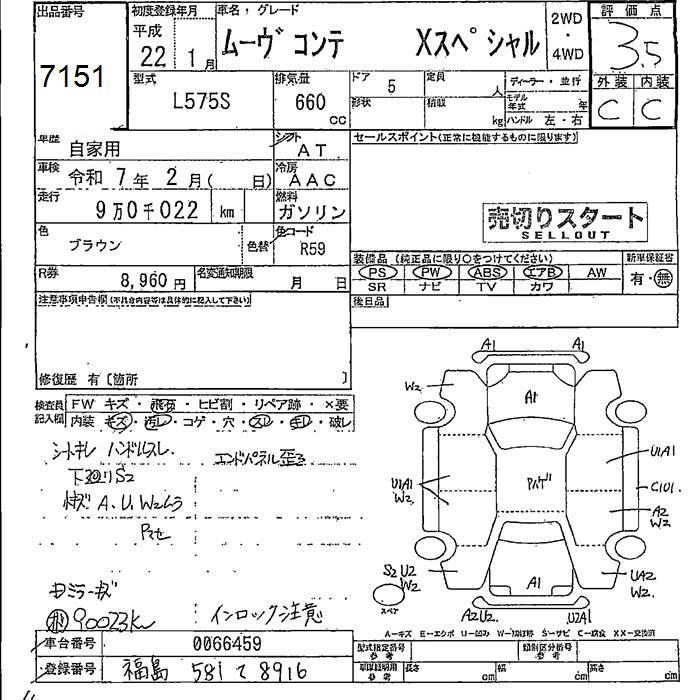 出品番号
7151
初度登録年月
平成
22 1月
車名・グレード
ムーヴ コンテ Xスペシャル
2WD
・
4WD
評価点
3.5
外装 内装
C C
型式
L575S
排気量
660
CC
ドア 5
形状
定員 人
積載 kg
ディーラー・並行
モデル年式 年
ハンドル 左・右
車歴
自家用
シフト
AT
車検
令和 7年 2月( 日)
冷房
AAC
走行
9万0千022 km
燃料
ガソリン
色
ブラウン
色替
色コード
R59
R券
8,960円
名変通知期限
月 日
セールスポイント(正常に機能するものに限ります)
売切りスタート
SELLOUT
装備品(純正品に限り○をつけてください) 新車保証書
PS PW ABS エアB AW 有・無
SR ナビ TV カワ
後日品
注意事項申告欄(不具合内容等は具体的に記入して下さい)
修復歴 有〔箇所 〕
検査員記入欄
FW キズ・飛石・ヒビ割・リペア跡・×要
内装 キズ・汚レ・コゲ・穴・スレ・キレ・破レ
シートキレ ハンドルスレ
エンドパネル歪ミ
下廻リS2
A.U.W2ムラ
インロック注意
90023K
A1 A1
W2
A1
U1A1
W2
U1A1
C1U1
A2
W2
S2U2
W2
UA2
W2
A1
A2U2
U2A1
スペア
A-キズ E-エクボ U-凹み W-補修跡 S-サビ C-腐食 XX-交換済
車台番号 0066459
登録番号 福島 581 て 8916
型式指定番号
参考
類別区分番号
参考
車庫証明用
参考
長さ cm 幅 cm 高さ cm